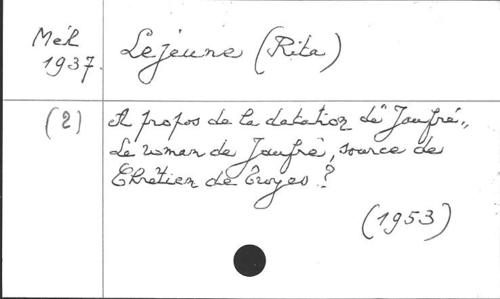 Mél
1937.
Lejeune (Rita)
(2)
A propos de la datation de "Jaufré".
Le roman de Jaufré, source de
Chrétien de Troyes ?
(1953)